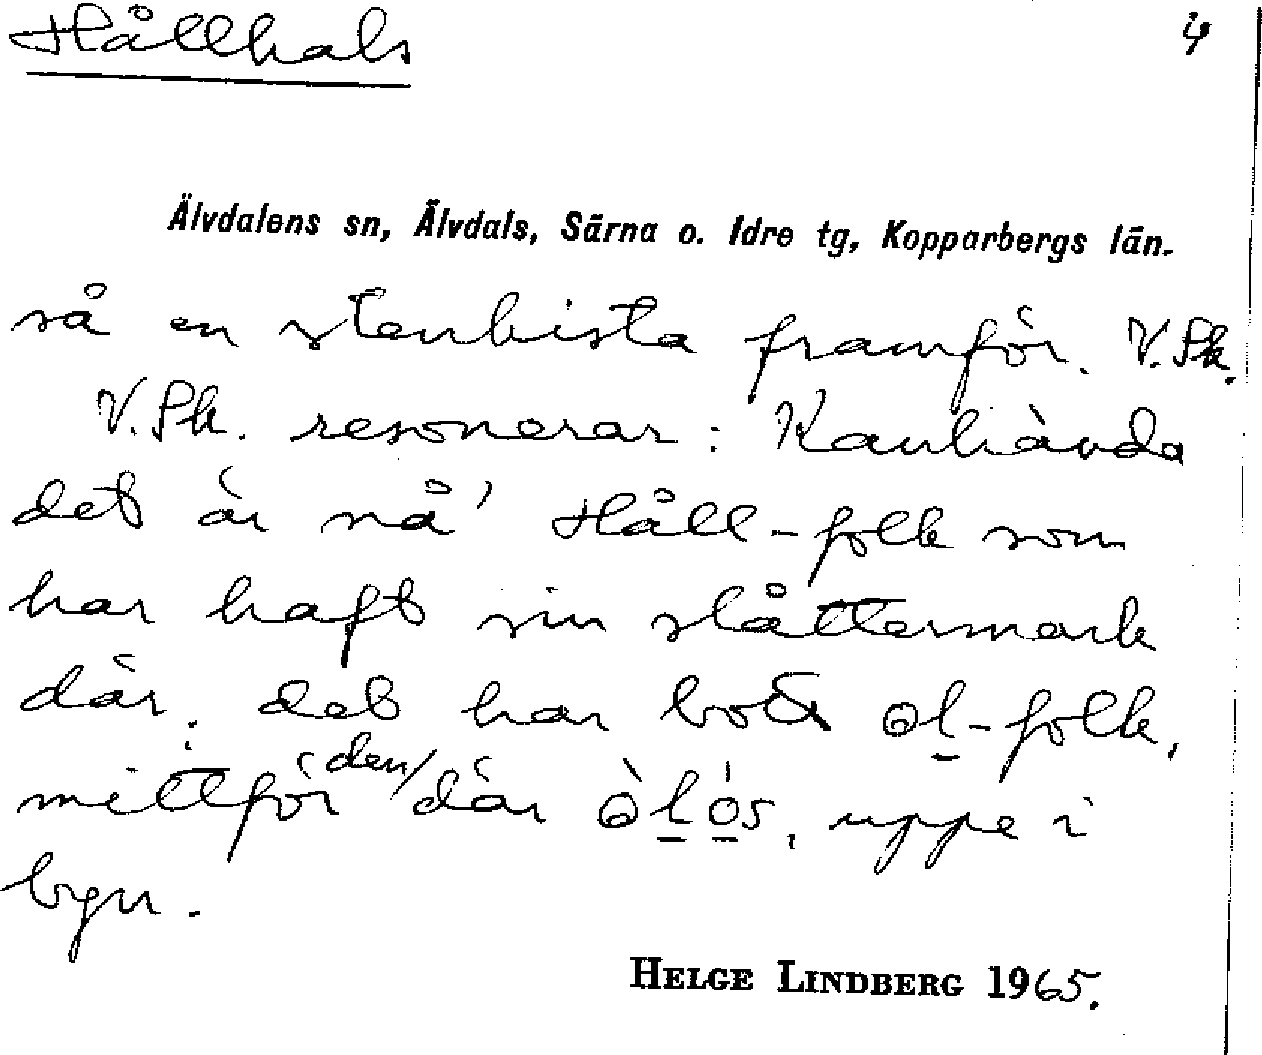 Hållhals
4
Älvdalens sn, Älvdals, Särna o. Idre tg, Kopparbergs län.
så en stenkista framför. V.Pk.
V.Pk. resonerar: Kanhända
det är nå' Håll-folk som
har haft sin slåttermark
där. det har bott ol-folk,
mittför den där òlós, uppe i
byn.
HELGE LINDBERG 1965.